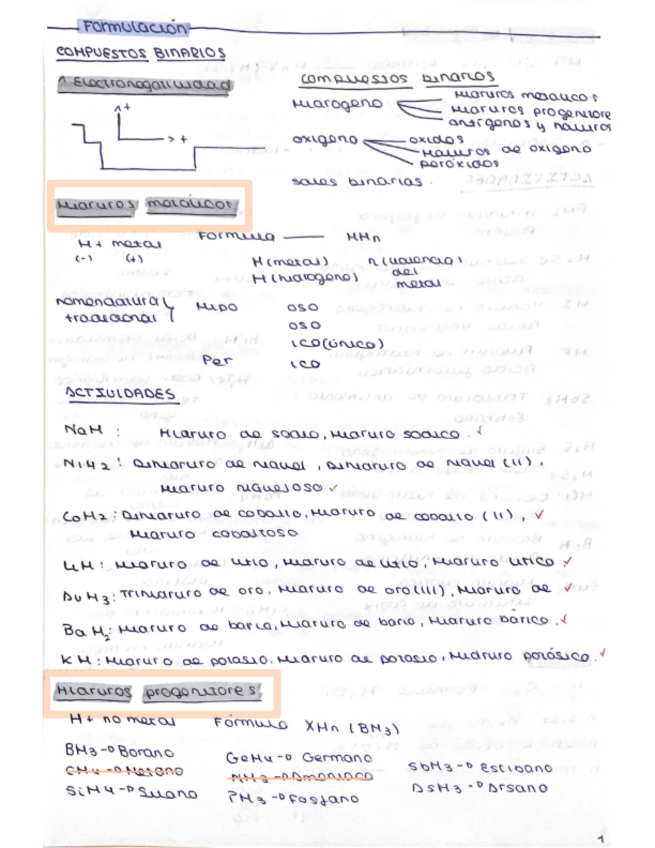 Formulación
COMPUESTOS BINARIOS
↑ Electronegatividad
Compuestos binarios
Hidrógeno
Hidruros metálicos
Hidruros progenitore
antrgenos y haluros
oxígeno
óxidos
Haluros de oxígeno
Peróxidos
sales binarias.
Hidruros metálicos
H + metal
(-) (+)
Fórmula — MHn
M (metal) n (valencia
H (hidrógeno) del
metal
nomenclatura
tradicional
Hipo oso
oso
ico (único)
Per ico
ACTIVIDADES
NaH : Hidruro de sodio, Hidruro sódico. ✓
NiH2 : Dihidruro de níquel, Dihidruro de níquel (II),
Hidruro niqueloso ✓
CoH2 : Dihidruro de cobalto, Hidruro de cobalto (II), ✓
Hidruro cobaltoso
LiH : Hidruro de litio, Hidruro de litio, Hidruro lítico ✓
AuH3 : Trihidruro de oro, Hidruro de oro (III), Hidruro de ✓
BaH2 : Hidruro de bario, Hidruro de bario, Hidruro bárico. ✓
KH : Hidruro de potasio, Hidruro de potasio, Hidruro potásico. ✓
Hidruros progenitores
H + no metal Fórmula XHn (BH3)
BH3 → Borano
CH4 → Metano
SiH4 → Silano
GeH4 → Germano
NH3 → Amoniaco
PH3 → Fosfano
SbH3 → Estibano
AsH3 → Arsano
1